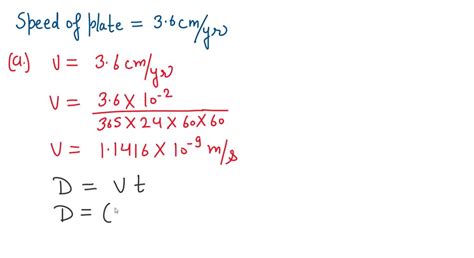 Speed of plate = 3.6 cm/yr
(a.) V = 3.6 cm/yr
V = 3.6 X 10⁻² / 365 X 24 X 60 X 60
V = 1.1416 X 10⁻⁹ m/s
D = v t
D = (